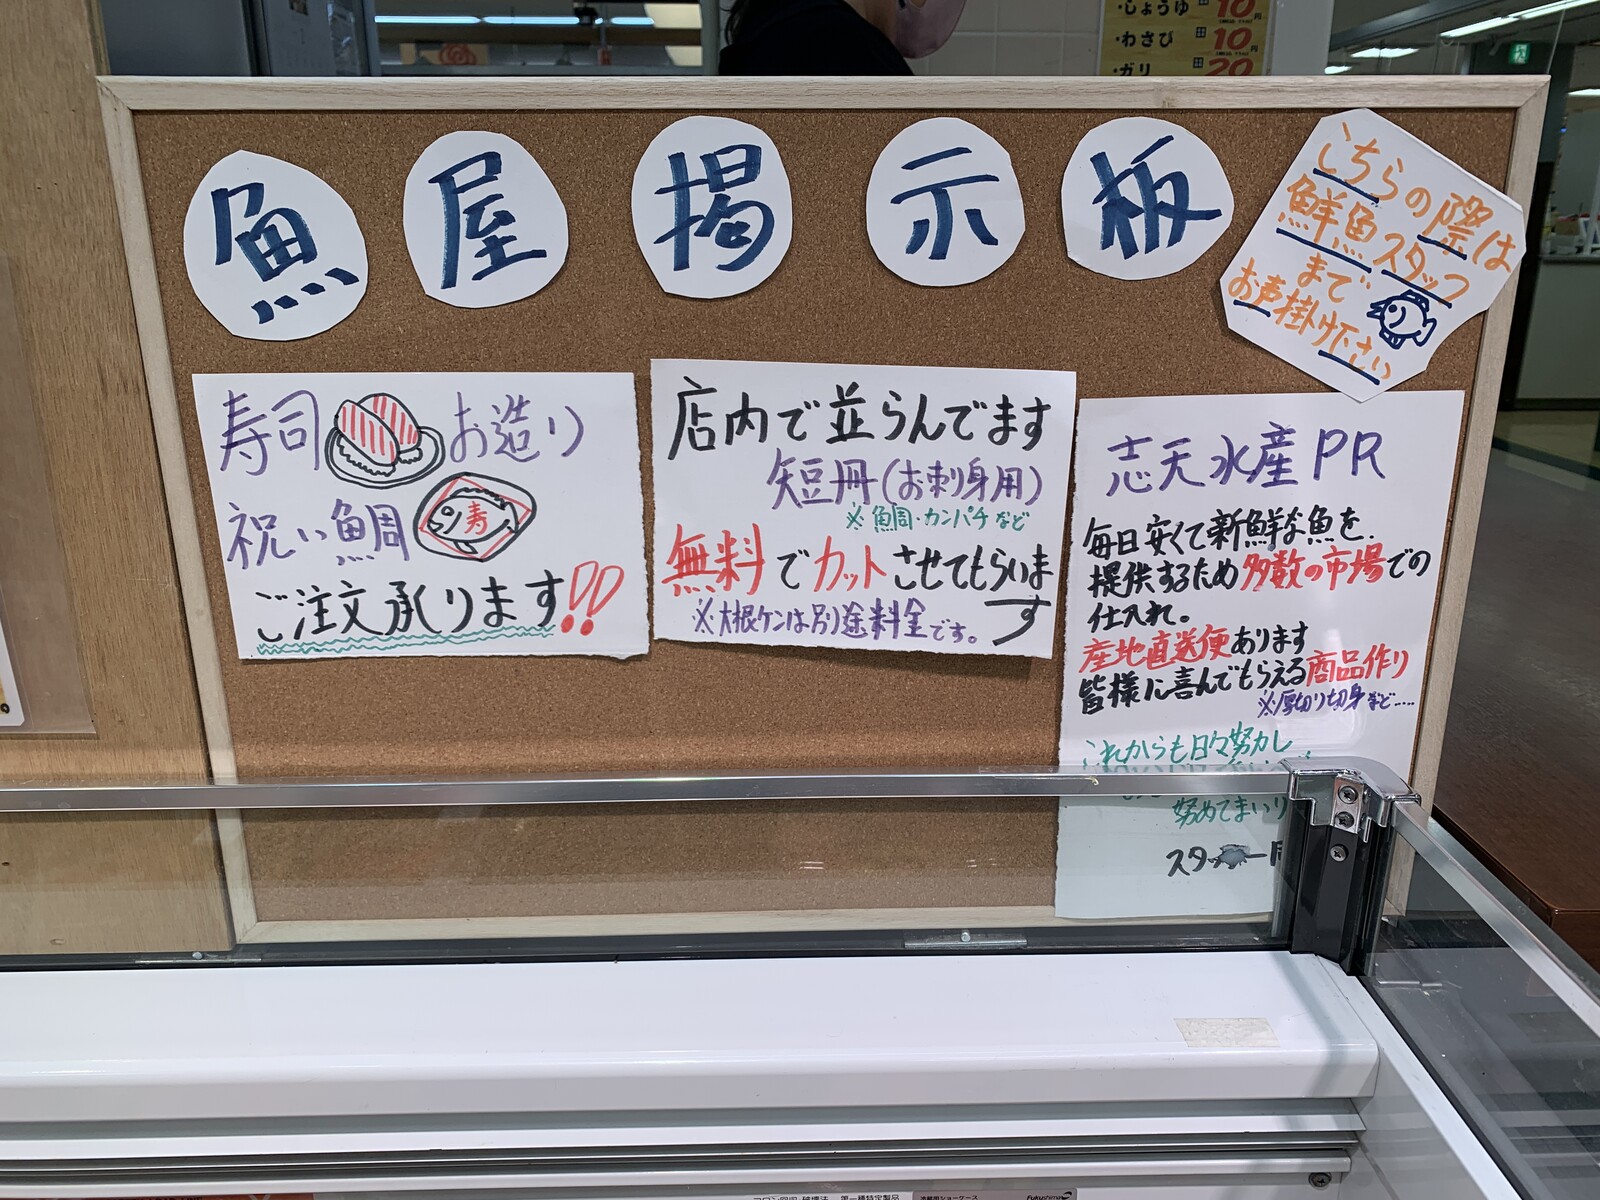 ・しょうゆ 10円
・わさび 10円
・ガリ 20
魚屋掲示板
こちらの際は
鮮魚スタッフ
まで
お声掛け下さい
寿司 お造り
祝い鯛
寿
ご注文承ります!!
店内で並らんでます
短冊(お刺身用)
※鯛・カンパチなど
無料でカットさせてもらいま
す
※大根ケンは別途料金です。
志天水産PR
毎日安くて新鮮な魚を
提供するため多数の市場での
仕入れ。
産地直送便あります
皆様に喜んでもらえる商品作り
※厚切り切身など……
これからも日々努力し
努めてまいり
スタ
第一種特定製品
冷蔵用ショーケース
Fukushima